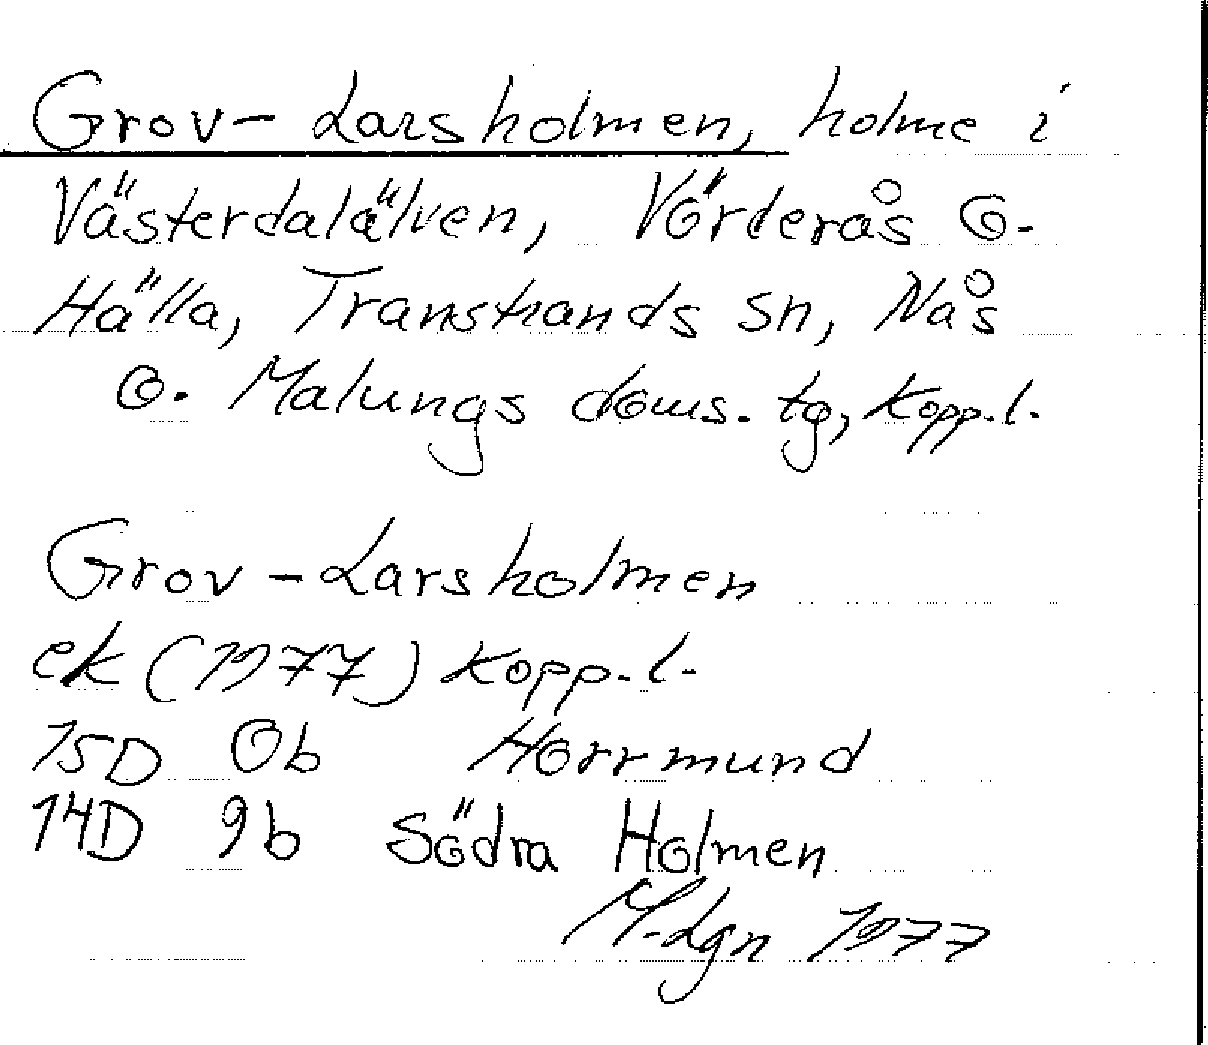 Grov-Larsholmen, holme i
Västerdalälven, Vörderås o.
Hälla, Transtrands sn, Nås
o. Malungs doms. tg, Kopp.l.
Grov-Larsholmen
ek (1977) Kopp.l.
15D 0b Horrmund
14D 9b Södra Holmen
M-dgn 1977